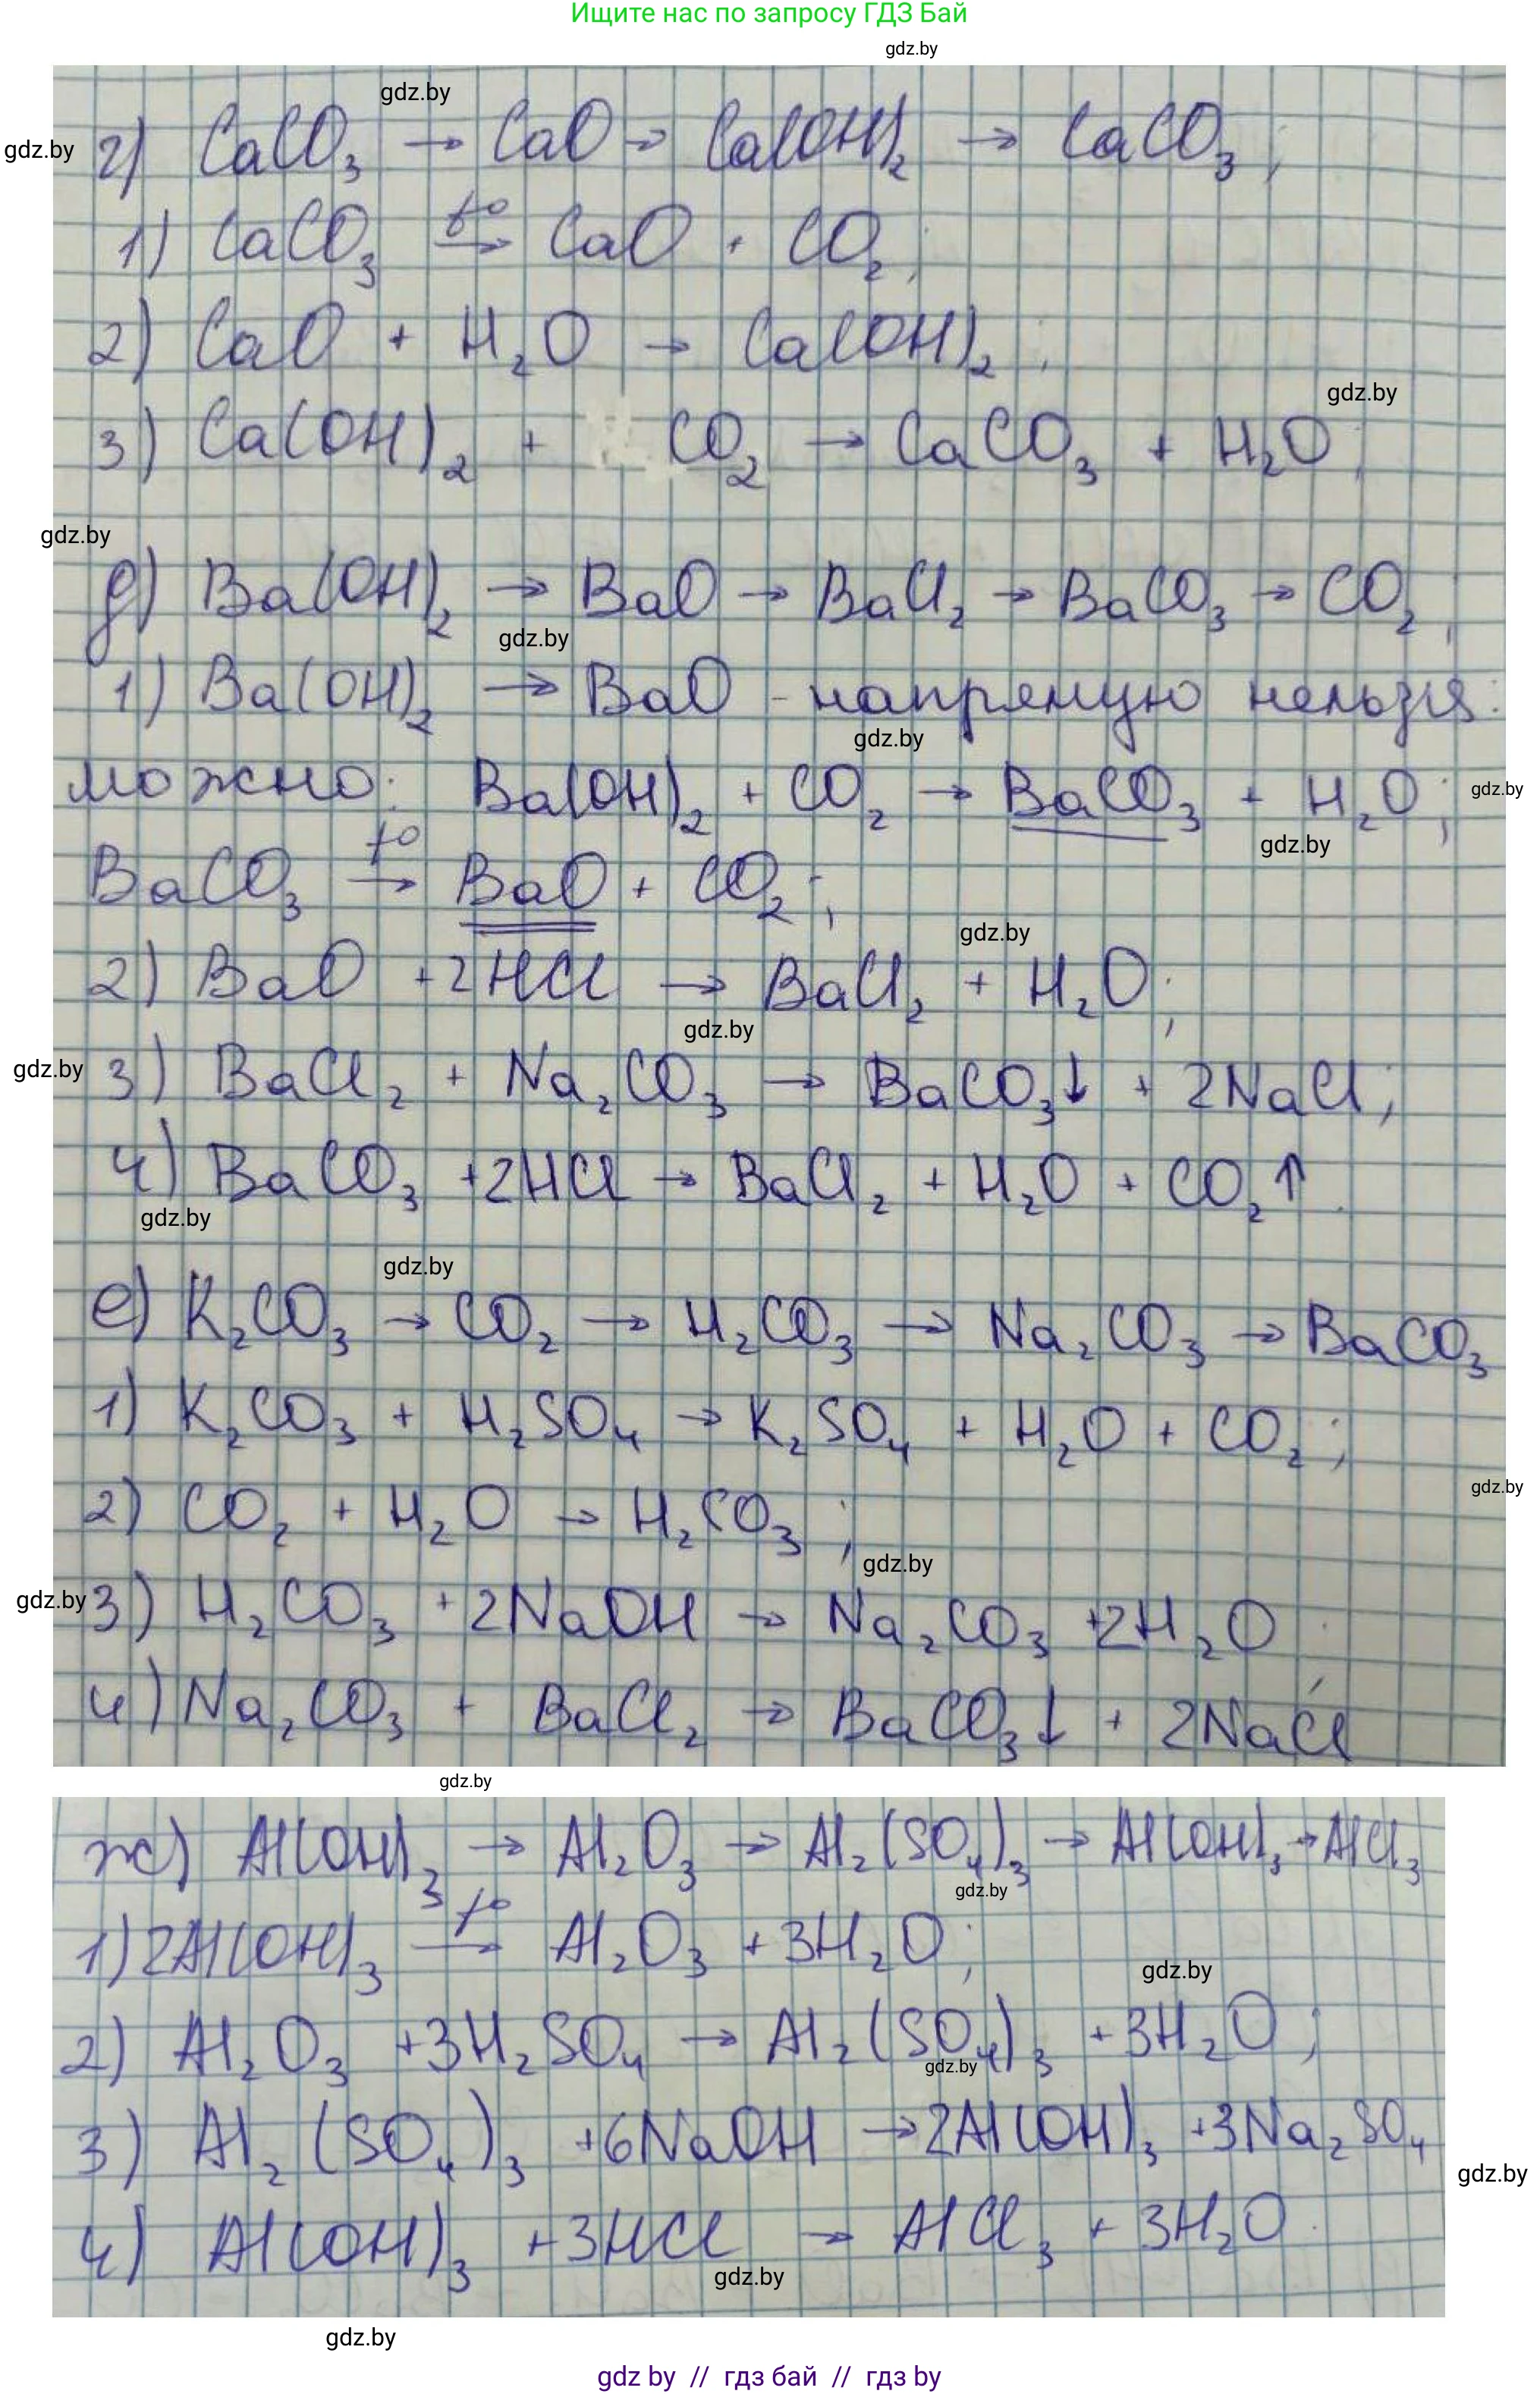 Ищите нас по запросу ГДЗ Бай
gdz.by
gdz.by
gdz.by
г) CaCO₃ → CaO → Ca(OH)₂ → CaCO₃;
1) CaCO₃ t° → CaO + CO₂;
2) CaO + H₂O → Ca(OH)₂;
gdz.by
3) Ca(OH)₂ + CO₂ → CaCO₃ + H₂O;
gdz.by
д) Ba(OH)₂ → BaO → BaCl₂ → BaCO₃ → CO₂;
gdz.by
1) Ba(OH)₂ → BaO - напрямую нельзя:
gdz.by
можно: Ba(OH)₂ + CO₂ → BaCO₃ + H₂O;
gdz.by
gdz.by
BaCO₃ t° → BaO + CO₂;
gdz.by
2) BaO + 2HCl → BaCl₂ + H₂O;
gdz.by
gdz.by
3) BaCl₂ + Na₂CO₃ → BaCO₃↓ + 2NaCl;
4) BaCO₃ + 2HCl → BaCl₂ + H₂O + CO₂↑.
gdz.by
gdz.by
е) K₂CO₃ → CO₂ → H₂CO₃ → Na₂CO₃ → BaCO₃
1) K₂CO₃ + H₂SO₄ → K₂SO₄ + H₂O + CO₂;
gdz.by
2) CO₂ + H₂O → H₂CO₃;
gdz.by
gdz.by
3) H₂CO₃ + 2NaOH → Na₂CO₃ + 2H₂O;
4) Na₂CO₃ + BaCl₂ → BaCO₃↓ + 2NaCl
gdz.by
ж) Al(OH)₃ → Al₂O₃ → Al₂(SO₄)₃ → Al(OH)₃ → AlCl₃
gdz.by
1) 2Al(OH)₃ t° → Al₂O₃ + 3H₂O;
gdz.by
2) Al₂O₃ + 3H₂SO₄ → Al₂(SO₄)₃ + 3H₂O;
gdz.by
3) Al₂(SO₄)₃ + 6NaOH → 2Al(OH)₃ + 3Na₂SO₄
gdz.by
4) Al(OH)₃ + 3HCl → AlCl₃ + 3H₂O.
gdz.by
gdz.by
gdz by // гдз бай // гдз by